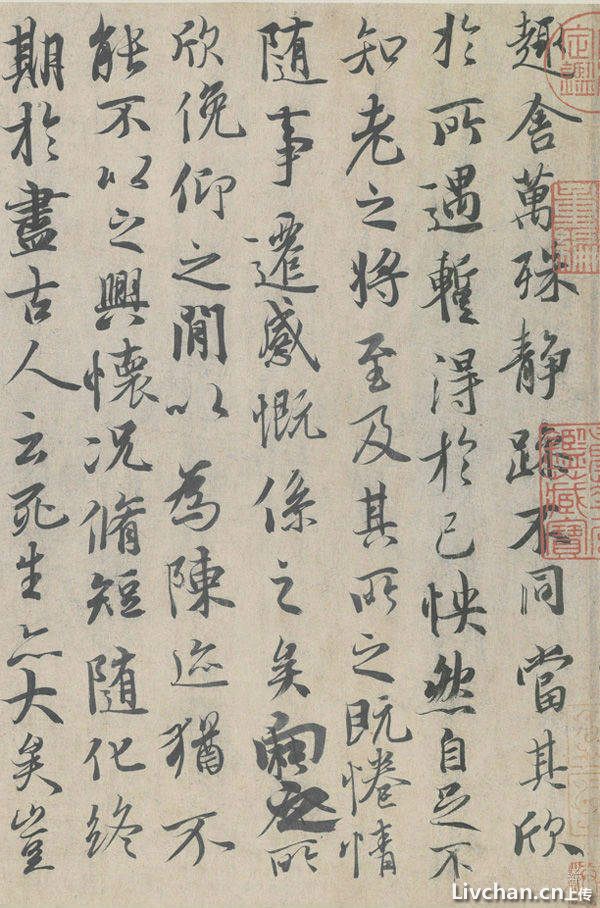 趣舍萬殊静躁不同當其欣
於所遇暫得於己怏然自足不
知老之將至及其所之既惓情
隨事遷感慨係之矣向之所
欣俛仰之閒以為陳迹猶不
能不以之興懷況脩短隨化終
期於盡古人云死生亦大矣豈
Livchan.cn上传